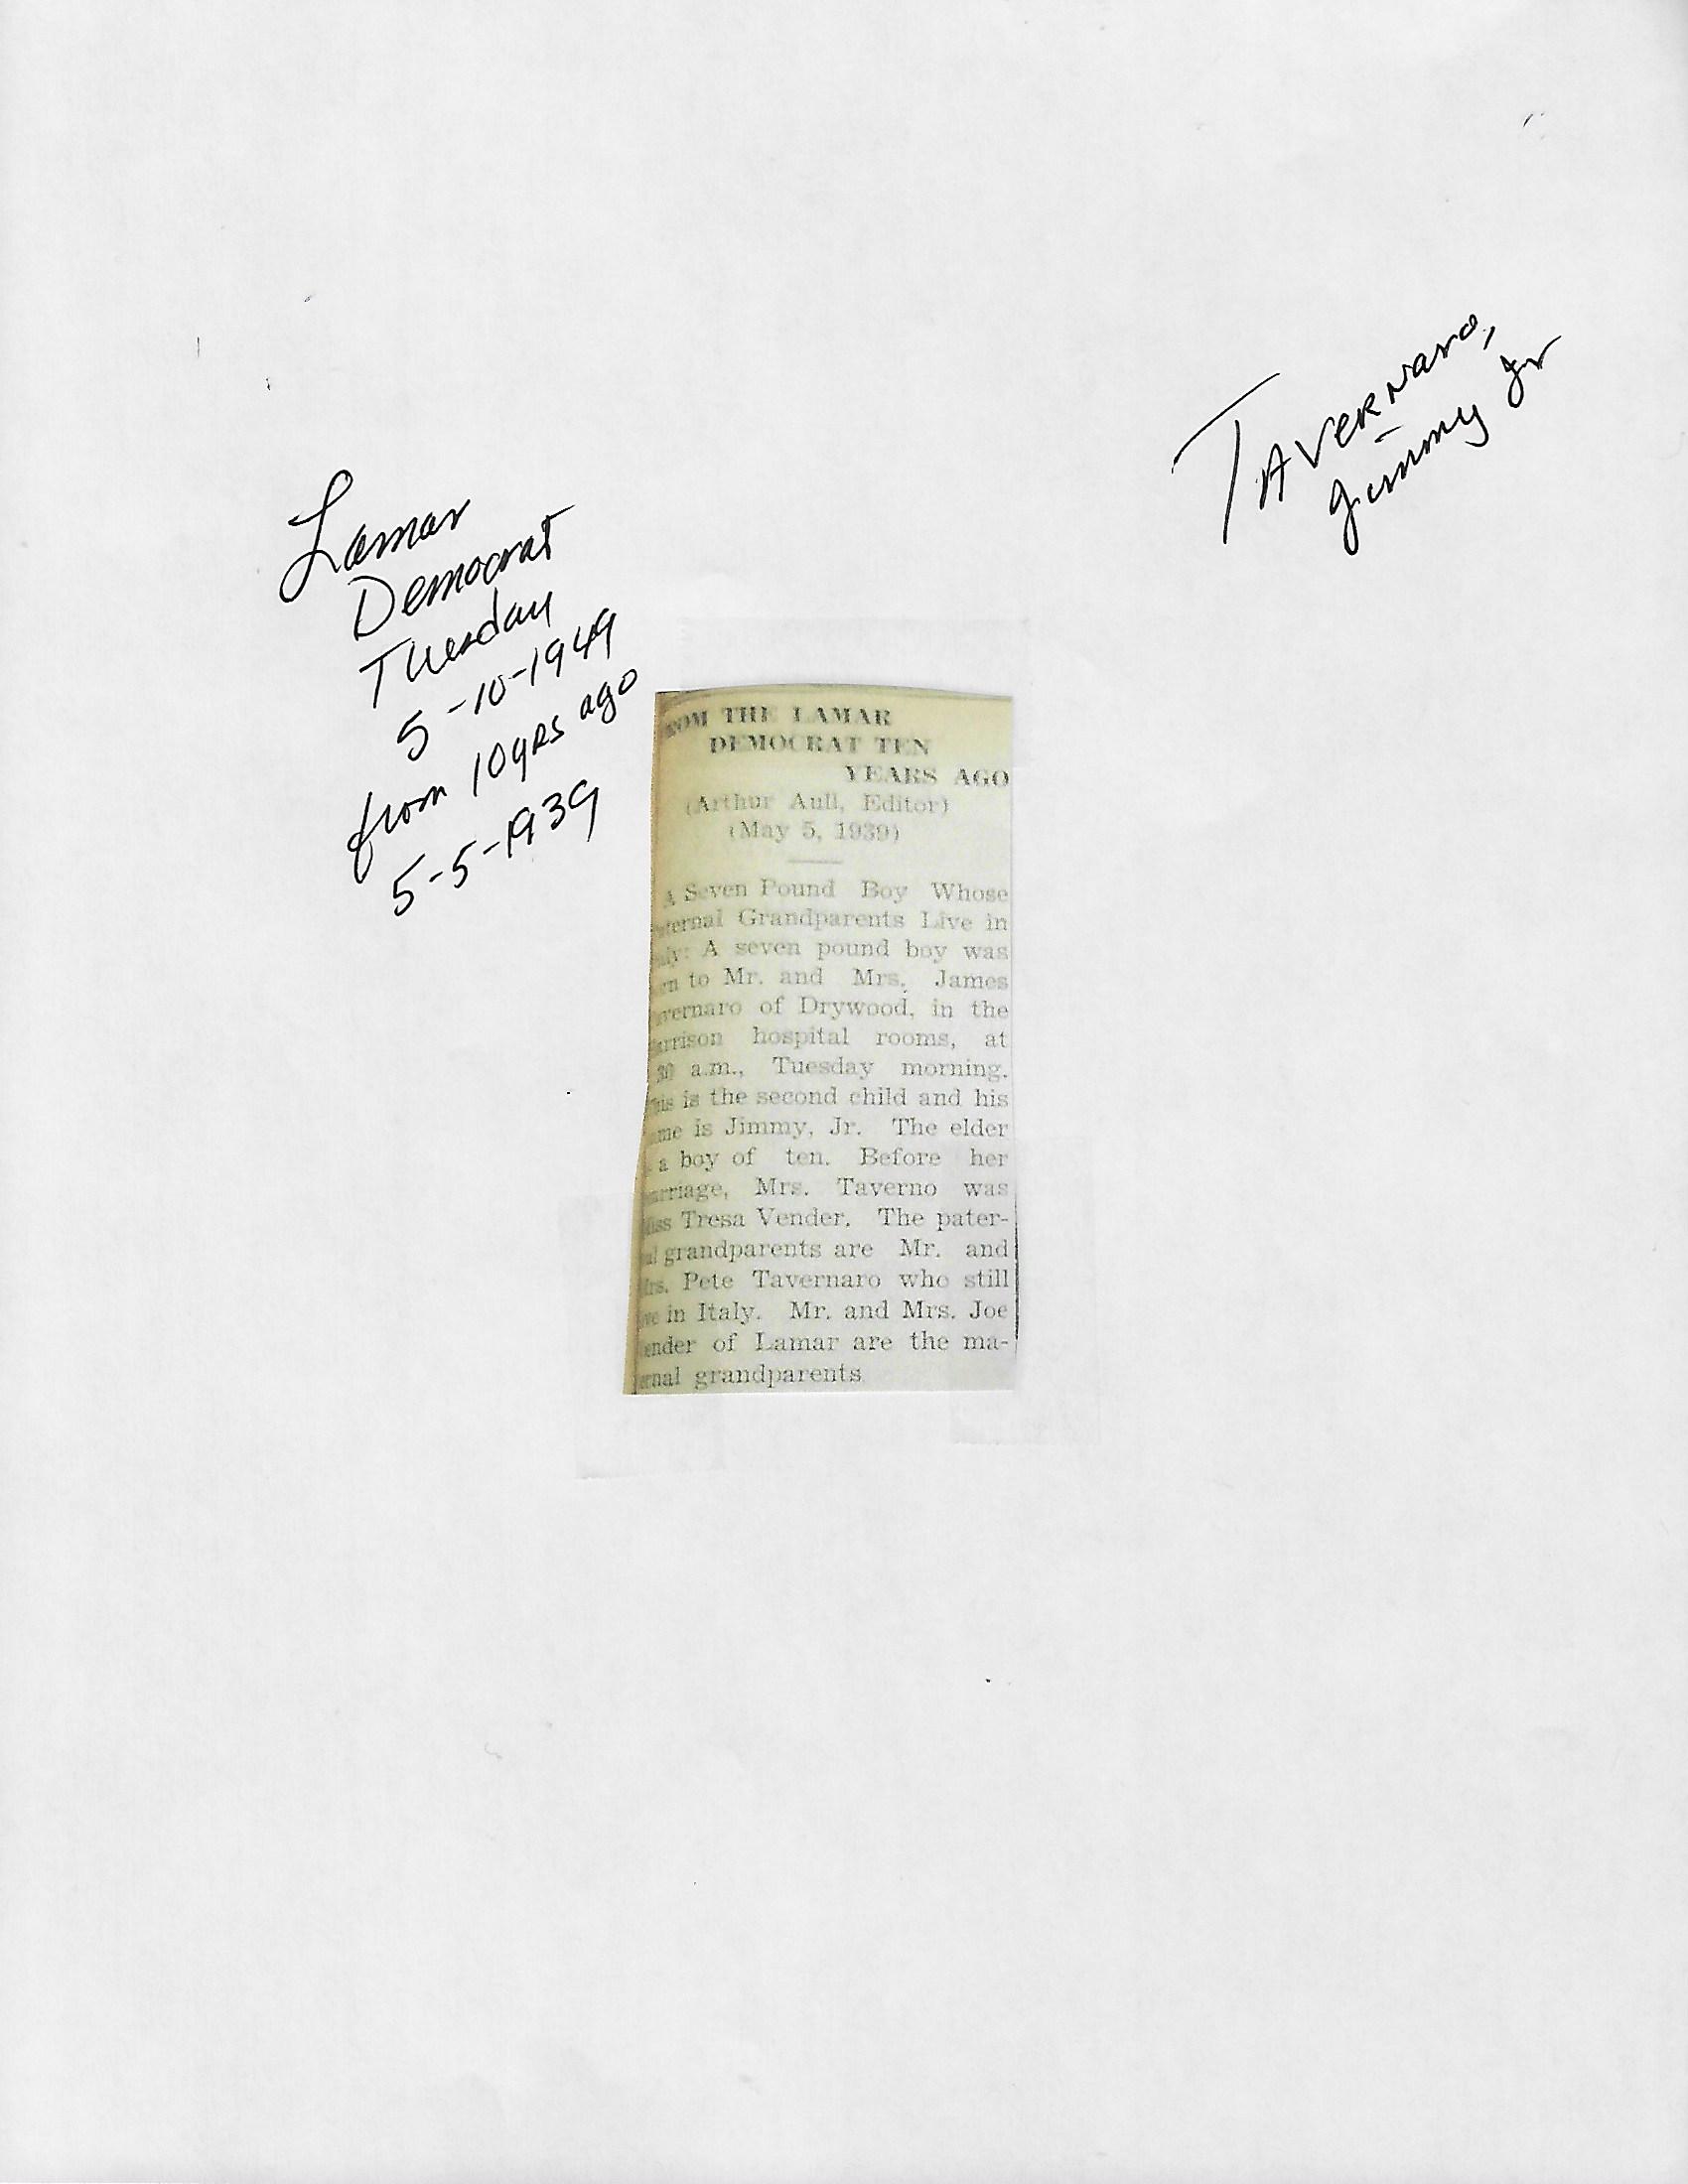 Tavernaro,
Jimmy Jr
Lamar
Democrat
Tuesday
5-10-1949
from 10yrs ago
5-5-1939
OM THE LAMAR
DEMOCRAT TEN
YEARS AGO
(Arthur Aull, Editor)
(May 5, 1939)
A Seven Pound Boy Whose
ternal Grandparents Live in
aly: A seven pound boy was
rn to Mr. and Mrs. James
avernaro of Drywood, in the
arrison hospital rooms, at
30 a.m., Tuesday morning.
This is the second child and his
ame is Jimmy, Jr. The elder
a boy of ten. Before her
arriage, Mrs. Taverno was
Miss Tresa Vender. The pater-
al grandparents are Mr. and
Mrs. Pete Tavernaro who still
ve in Italy. Mr. and Mrs. Joe
ender of Lamar are the ma-
ernal grandparents